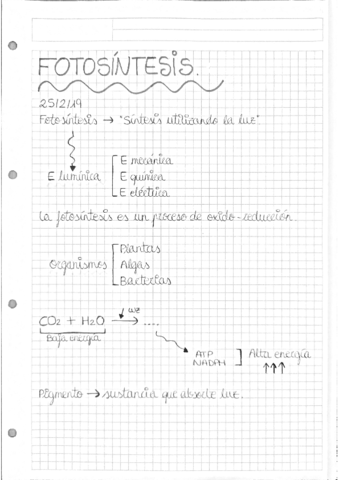 FOTOSÍNTESIS.
25/2/19
Fotosíntesis → "Síntesis utilizando la luz"
E lumínica [ E mecánica
E química
E eléctrica
La fotosíntesis es un proceso de oxido-reducción.
Organismos [ Plantas
Algas
Bacterias
luz
CO2 + H2O → ....
Baja energía
ATP
NADPH ] Alta energía ↑↑↑
Pigmento → sustancia que absorbe luz.